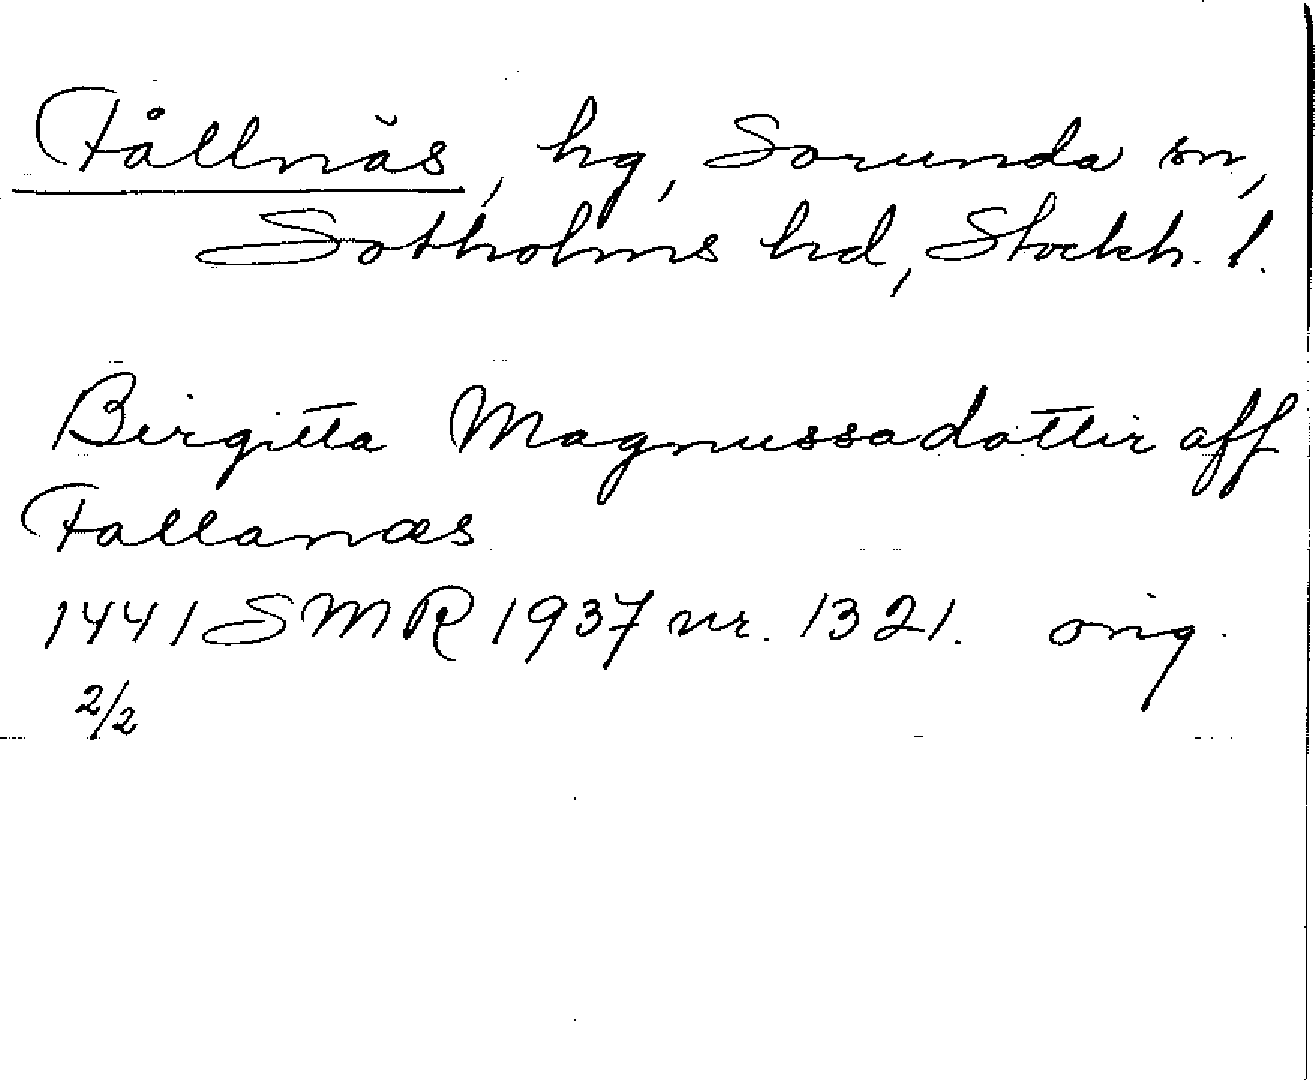 Fållnäs, hg, Sorunda sn,
Sotholms hd, Stockh. l.
Birgitta Magnussadotter aff
Fallanæs
1441 SMR 1937 nr. 1321. orig.
2/2